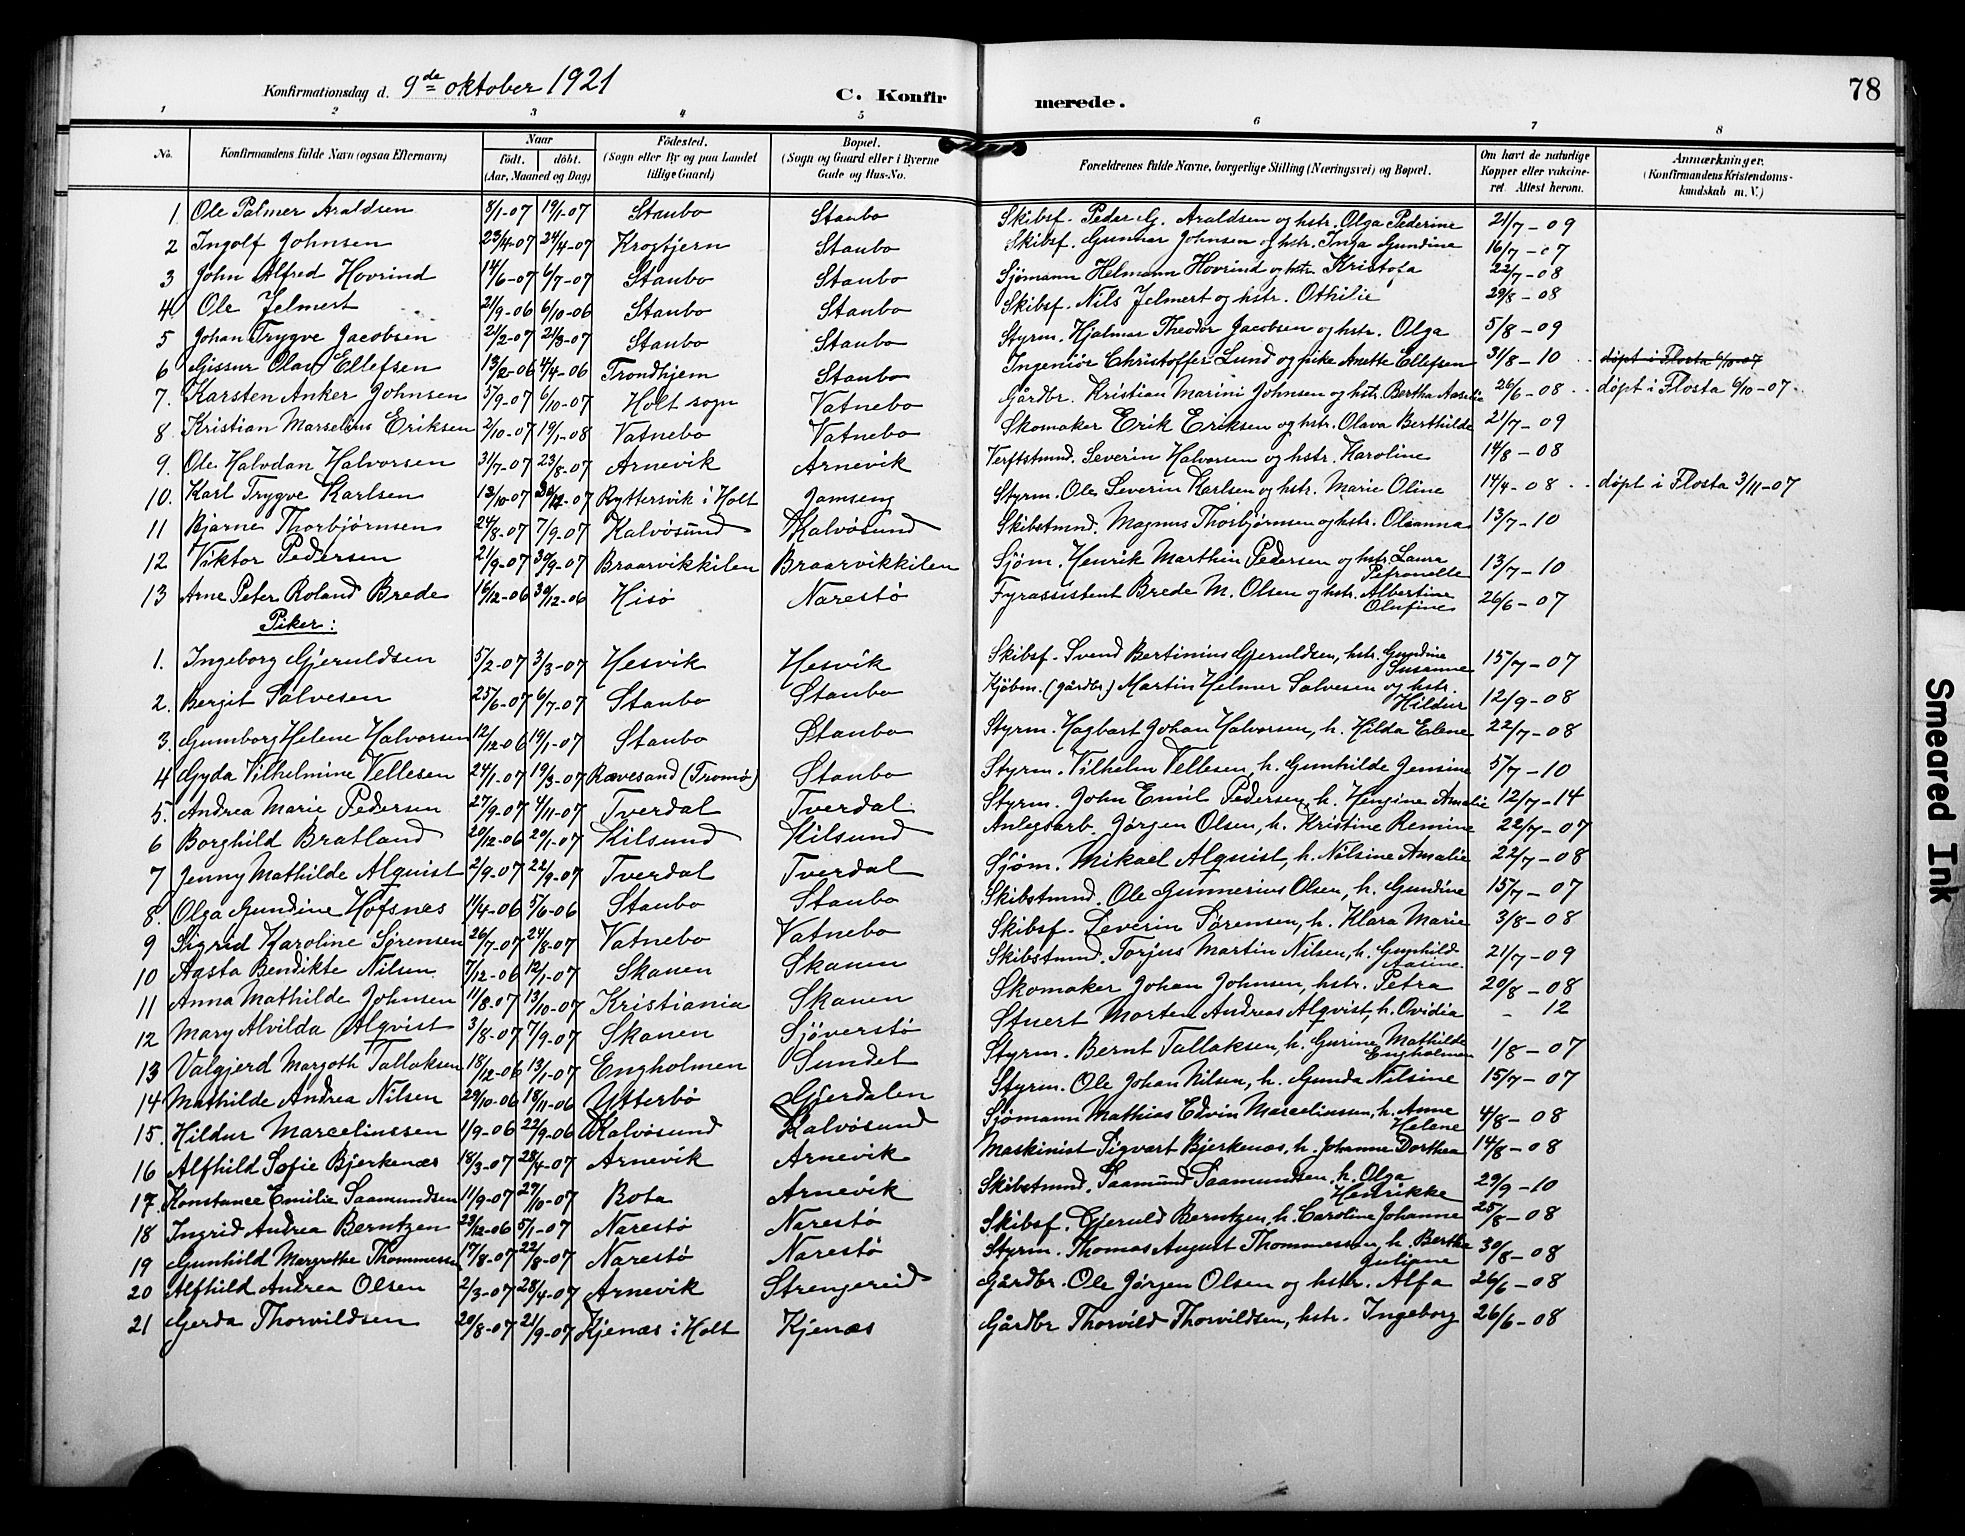 Konfirmationsdag d. 9de oktober 1921
C. Konfir merede. 78
1 2 3 4 5 6 7 8
No. Konfirmandens fulde Navn (ogsaa Efternavn) Naar födt. döbt. (Aar, Maaned og Dag) Födested. (Sogn eller By og paa Landet tillige Gaard) Bopæl. (Sogn og Gaard eller i Byerne Gade og Hus-No. Forældrenes fulde Navne, borgerlige Stilling (Næringsvei) og Bopæl. Om havt de naturlige Kopper eller vakcineret. Attest herom. Anmærkninger. (Konfirmandens Kristendomskundskab m. V.)
1. Ole Palmer Araldsen 8/1-07 19/1-07 Staubo Staubo Skibsf. Peder G. Araldsen og hstr. Olga Pederine 21/7-09
2 Ingolf Johnsen 23/4-07 24/4-07 Krogtjern Staubo Skibsf. Gunnar Johnsen og hstr. Inga Gundine 16/7-07
3 John Alfred Hovrind 14/6-07 6/7-07 Staubo Staubo Sjømann Helmann Hovrind og hstr. Kristofa 22/7-08
4 Ole Jelmert 21/9-06 6/10-06 Staubo Staubo Skibsf. Nils Jelmert og hstr. Othilie 29/8-08
5 Johan Trygve Jacobsen 21/2-07 21/3-07 Staubo Staubo Styrm. Hjalmar Theodor Jacobsen og hstr. Olga 5/8-09
6 Gissur Olav Ellefsen 13/2-06 4/4-06 Trondhjem Staubo Ingeniør Christoffer Lund og pike Anette Ellefsen 31/8-10 døpt i Flosta 6/10-07
7. Karsten Anker Johnsen 5/9-07 6/10-07 Holt sogn Vatnebo Gårdbr. Kristian Marini Johnsen og hstr. Bertha Aaselie 26/6-08 døpt i Flosta 6/10-07
8 Kristian Marselius Eriksen 2/10-07 19/1-08 Vatnebo Vatnebo Skomaker Erik Eriksen og hstr. Olava Berthilde 21/7-09
9. Ole Halvdan Halvorsen 31/7-07 23/8-07 Arnevik Arnevik Verftstmnd. Severin Halvorsen og hstr. Karoline 14/8-08
10. Karl Trygve Karlsen 13/10-07 Ryttersvik i Holt Jamseng Styrm. Ole Severin Karlsen og hstr. Marie Oline 14/4-08 døpt i Flosta 3/11-07
11 Bjarne Thorbjørnsen 24/8-07 7/9-07 Kalvøsund Kalvøsund Skibstmnd. Magnus Thorbjørnsen og hstr. Oleanna 13/7-10
12 Viktor Pedersen 21/9-07 30/9-07 Braarvikkilen Braarvikkilen Sjøm. Henrik Marthin Pedersen og hstr. Laura Petronelle 13/7-10
13 Arne Peter Roland Brede 16/12-06 30/12-06 Hisø Narestø Fyrassistent Brede M. Olsen og hstr. Albertine Olufine 26/6-07
Piker:
1. Ingeborg Gjeruldsen 5/2-07 3/3-07 Hesvik Hesvik Skibsf. Svend Bertinius Gjeruldsen, hstr. Gundine Susanne 15/7-07
2. Bergit Salvesen 25/6-07 6/7-07 Staubo Staubo Kjøbm. (gårdbr) Martin Helmer Salvesen og hstr. Hildur 12/9-08
3. Gumborg Helene Halvorsen 12/12-06 19/1-07 Staubo Staubo Styrm. Hagbart Johan Halvorsen, h. Hilda Elene 22/7-08
4 Gyda Vilhelmine Vellesen 24/1-07 19/3-07 Rævesand (Tromø) Staubo Styrm. Vilhelm Vellesen, h. Gunhilde Jensine 5/7-10
5. Andrea Marie Pedersen 27/9-07 4/11-07 Tverdal Tverdal Styrm. John Emil Pedersen, h. Hengine Amalie 12/7-14
6 Borghild Bratland 20/12-06 20/1-07 Kilsund Kilsund Anlegsarb. Jørgen Olsen, h. Kristine Remine 22/7-07
7 Jenny Mathilde Alqvist 2/9-07 22/9-07 Tverdal Tverdal Sjøm. Mikael Alqvist, h. Nilsine Amalie 22/7-08
8. Olga Gundine Hofsnes 11/4-06 5/6-06 Staubo Staubo Skibstmnd. Ole Gunnerius Olsen, h. Gundine 15/7-07
9 Sigrid Karoline Sørensen 26/7-07 24/8-07 Vatnebo Vatnebo Skibsf. Severin Sørensen, h. Klara Marie 3/8-08
10 Agsta Bendikte Nilsen 7/12-06 12/1-07 Skanen Skanen Skibstmnd. Torjus Martin Nilsen, h. Gunhild Aasine. 21/7-09
11 Anna Mathilde Johnsen 11/8-07 13/10-07 Kristiania Skanen Skomaker Johan Johnsen, hstr. Petra 20/8-08
12 Mary Alvilda Alqvist 3/8-07 7/9-07 Skanen Sjöverstø Stuert Morten Andreas Alqvist, h. Ovidia - 12
13 Valgjerd Margoth Tallaksen 18/12-06 13/1-07 Engholmen Sundet Styrm. Bernt Tallaksen, h. Gurine Mathilde Engholmen 1/8-07
14 Mathilde Andrea Nilsen 29/10-06 18/11-06 Ytterbø Gjerdalen Styrm. Ole Johan Nilsen, h. Gunda Nilsine 15/7-07
15. Hildur Marceliussen 1/9-06 22/9-06 Kalvøsund Kalvøsund Sjømann Mathias Edvin Marceliussen, h. Anne Helene 4/8-08
16 Alfhild Sofie Bjerkenæs 18/3-07 28/4-07 Arnevik Arnevik Maskinist Sigvart Bjerkenæs, h. Johanne Dorthea 14/8-08
17. Konstance Emilie Saamundsen 11/9-07 27/10-07 Bota Arnevik Skibstmnd. Saamund Saamundsen, h. Olga Henrikke 29/9-10
18 Ingrid Andrea Berntzen 23/12-06 5/1-07 Narestø Narestø Skibsf. Gjeruld Berntzen, h. Caroline Johanne 25/8-08
19 Gunhild Margrethe Thommesen 17/8-07 22/8-07 Narestø Narestø Styrm. Thomas August Thommesen, h. Bertha Juliane 30/8-08
20 Alfhild Andrea Olsen 2/3-07 28/4-07 Arnevik Strengereid Gårdbr. Ole Jørgen Olsen og hstr. Alfa 26/6-08
21 Gerda Thorvildsen 20/8-07 21/9-07 Kjenæs i Holt Kjenæs Gårdbr Thorvild Thorvildsen, hstr. Ingeborg 26/6-08
Smeared Ink